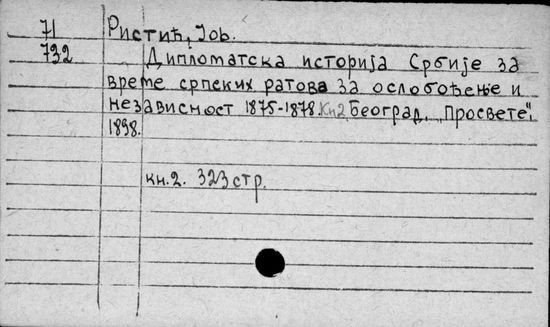 71 Ристић, Јов.
732 Дипломатска историја Србије за
време српских ратова за ослобођење и
независност 1875-1878. Кн2, Београд, "Просвете",
1898.
кн. 2. 323 стр.